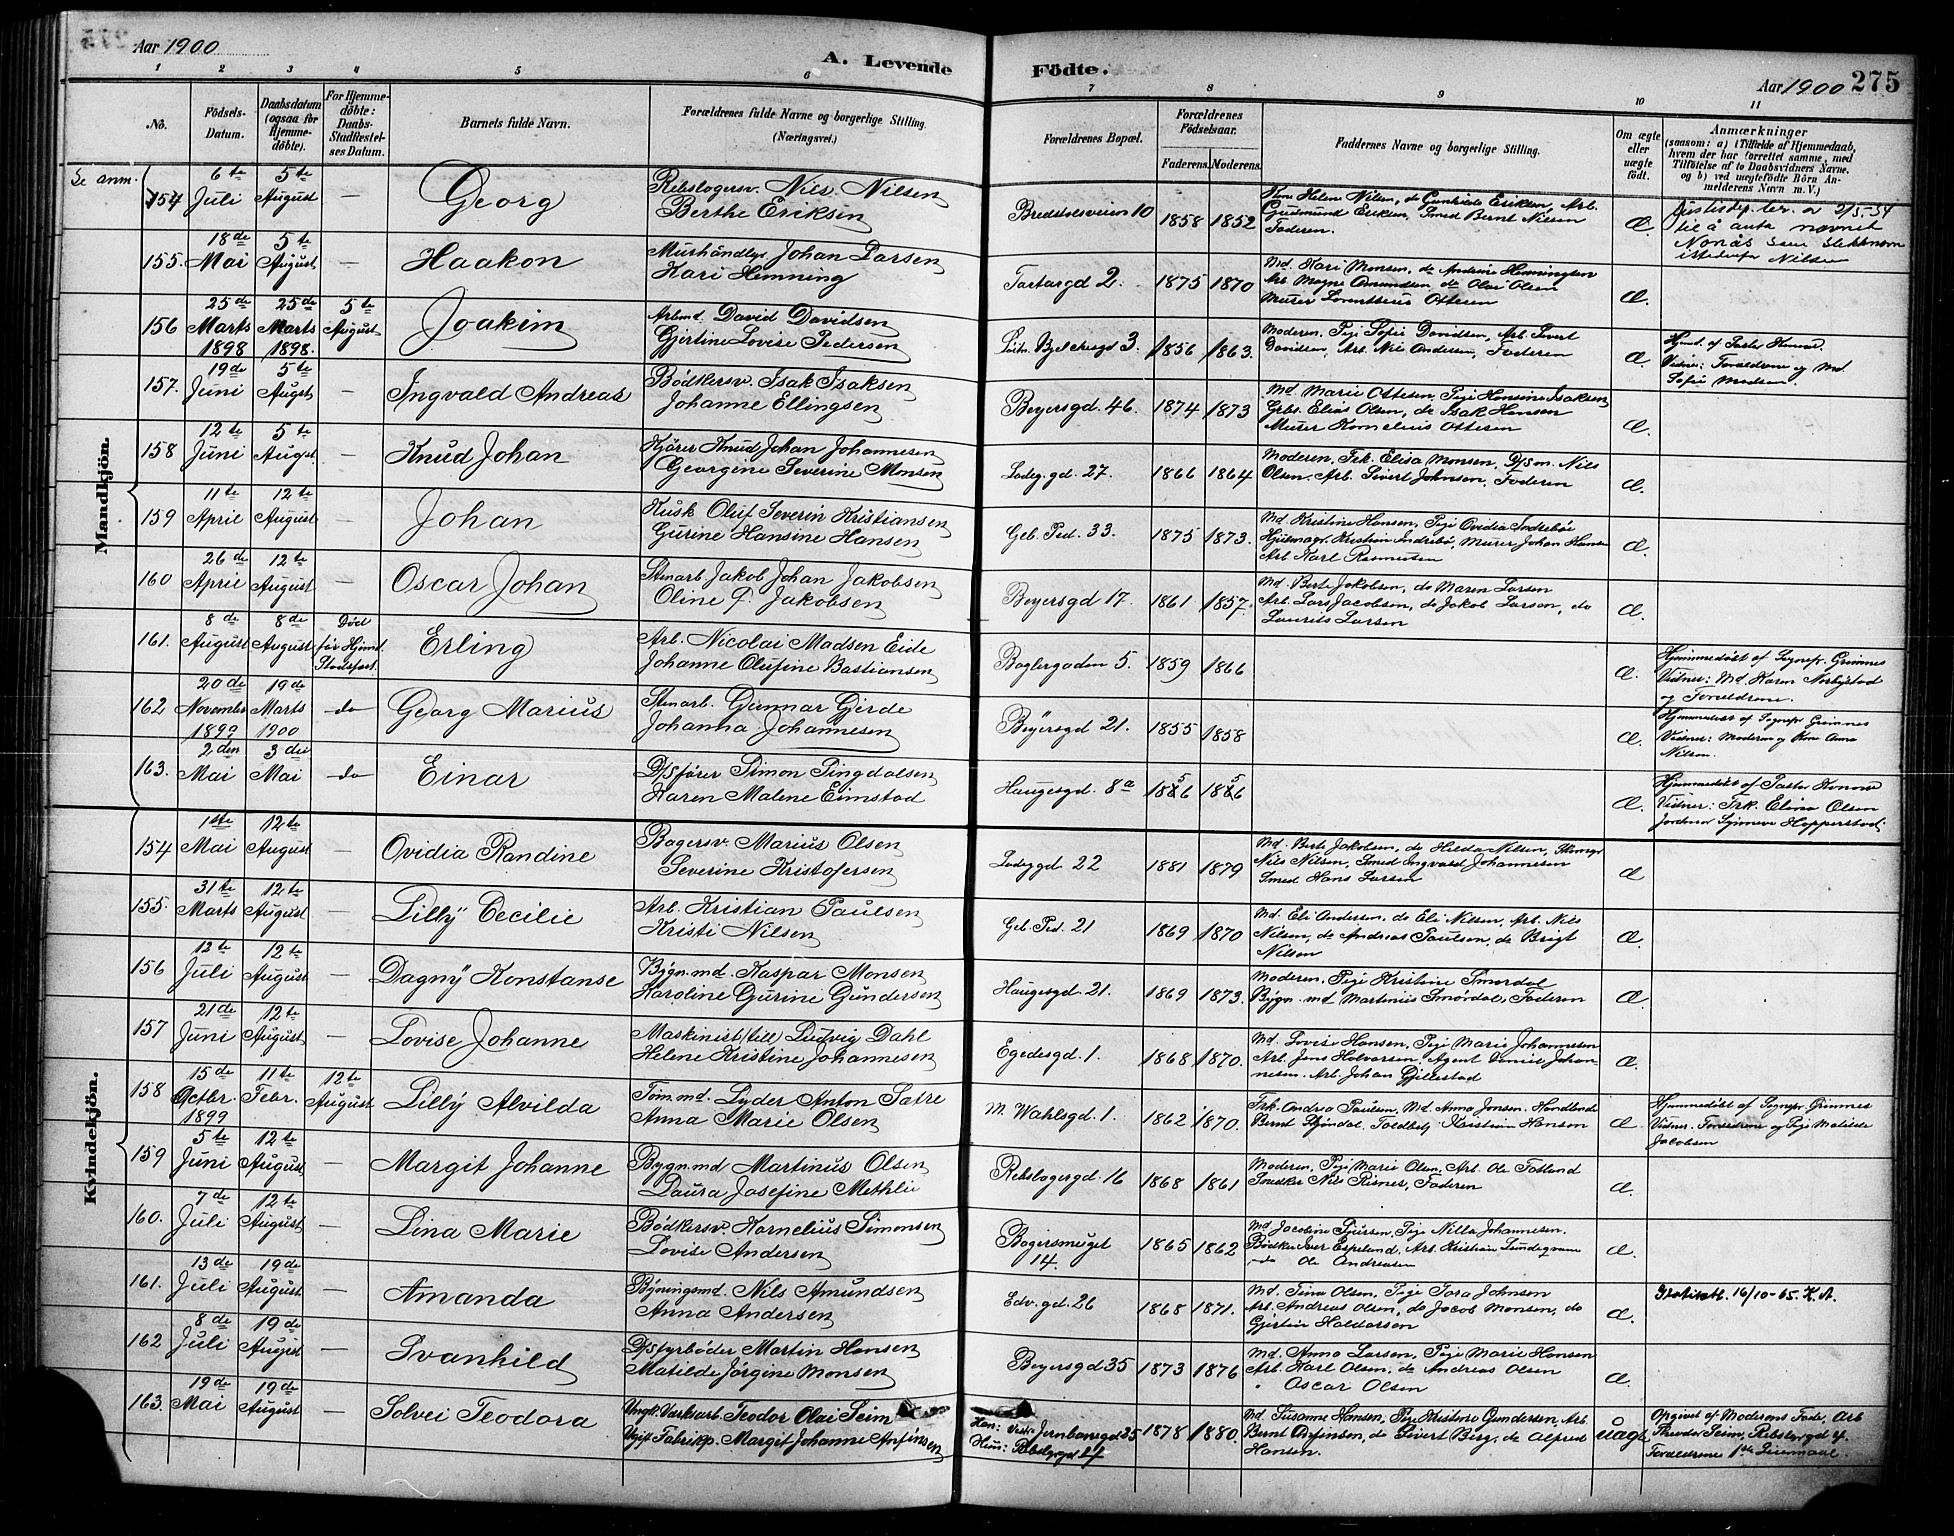 Aar 1900
A. Levende Födte.
Aar 1900 275
1 2 3 4 5 6 7 8 9 10 11
No.
Födsels-Datum.
Daabsdatum (ogsaa for Hjemme-döbte).
For Hjemme-döbte: Daabs-Stadfæstel-ses Datum.
Barnets fulde Navn.
Forældrenes fulde Navne og borgerlige Stilling.
(Næringsvei.)
Forældrenes Bopæl.
Forældrenes Födselsaar.
Faderens. Moderens.
Faddernes Navne og borgerlige Stilling.
Om ægte eller uægte födt.
Anmærkninger
(saasom: a) i Tilfælde af Hjemmedaab,
hvem der har forrettet samme, med
Tilföielse af to Daabsvidners Navne.
og b) ved uægtefödte Börn An-
melderens Navn m. V.)
Mandkjön.
Se anm.
154 6te Juli 5te August — Georg
Rebslagersv. Nils Nilsen
Berthe Eriksen
Bredstolsveien 10 1858 1852
Kone Helene Nilsen, do Gunhilde Eriksen, Arb.
Gudmund Eriksen, Smed Bernt Nilsen
Faderen.
Æ.
Justisdep. ter. av 2/5-54
til å anta navnet
Nonås som slektsnavn
istedenfor Nilsen
155. 18de Mai 5te August — Haakon
Murhåndlgr. Johan Larsen
Kari Henning
Tartargd 2. 1875 1870
Md. Kari Monsen, do Andrine Henningsen
Arb. Magne Amundsen, do Olai Olsen
Murer Lorentzius Ottesen
Æ.
156 25de Marts 1898 25de Marts 1898. 5te August Joakim
Arbmd. David Davidsen
Gjertine Lovise Pedersen
3. 1856 1863.
Moderen, Pige Sofie Davidsen, Arb. Sivert
Davidsen, Arb. Nils Andersen, Faderen
Æ.
Vidner: Forældrene og Md.
Sofie Madsen
157. 19de Juni 5te Augst — Ingvald Andreas
Bödkersv. Isak Isaksen
Johanne Ellingsen
Beyersgd. 46. 1874 1873
Md. Marie Ottesen, Pige Hansine Isaksen
Grbs. Elias Olsen, do Isak Hansen
Murer Kornelius Ottesen
Æ.
158 12te Juni 5te Augst. — Knud Johan
Kjörer Knud Johan Johannesen
Georgine Severine Monsen
Ladeg.gd. 27. 1866 1864
Moderen, Frk. Elisa Monsen, D/sm. Nils
Olsen. Arb. Sivert Johnsen, Faderen
Æ.
159 11te April 12te August — Johan
Kusk Oluf Severin Kristiansen
Gurine Hansine Hansen
Geb. Ped. 33. 1875 1873.
Md. Kristine Hansen, Pige Ovidia Indreböe
Hjulmagr. Kristian Indrebö, Murer Johan Hansen
Arb. Karl Rasmussen
Æ.
160 26de April 12te August — Oscar Johan
Stenarb. Jakob Johan Jakobsen
Oline P. Jakobsen
Beyersgd 17. 1861 1857.
Md. Berte Jakobsen, do Maren Larsen
Arb. Lars Jacobsen, do Jakob Larsen, do
Laurits Larsen
Æ.
161. 8de August 8de August Död för Hjemd. Stadsfæst. Erling
Arb. Nicolai Madsen Eide
Johanne Olufine Bastiansen
Baglergaden 5. 1859 1866
Æ.
Hjemmedöbt af Sognepr. Grimnes
Vidner: Md. Karen Norbystad
og Forældrene
162 20de November 1899 19de Marts 1900 do Georg Marius
Stenarb. Gunnar Gjerde
Johanna Johannesen
Beÿersgd. 21. 1855 1858
Æ.
Hjemmedöbt af Sognepr. Grimnes
Vidner: Moderen og Kone Anna
Nilsen.
163. 2den Mai 3die Mai do Einar
D/sförer Simon Tingdalsen
Karen Malene Eimstad
Haugesgd. 8a 1856 1856
Æ.
Hjemmedöbt af Pastor Konow
Vidner: Frk. Elina Olsen
Jordmor Synneve Hopperstad.
Kvindekjön.
154 1ste Mai 12te August — Ovidia Randine
Bagersv. Marius Olsen
Severine Kristofersen
Ladeggd 22 1881 1879
Md. Berte Jakobsen, do Hilda Nilsen,
Nils Nilsen, Smed Ingvald Johannesen
Smed Hans Larsen
Æ
155. 31te Marts 12te August — Lillÿ Cecilie
Arb. Kristian Paulsen
Kristi Nilsen
Geb Ped. 21 1869 1870
Md. Eli Andersen, do Eli Nilsen, Arb. Nils
Nilsen, do Andreas Paulsen, do Brigt
Nilsen
Æ.
156 12te Juli 12te August — Dagnÿ Konstanse
Bygn.md. Kaspar Monsen
Karoline Gurine Gundersen
Haugesgd. 21. 1869 1873.
Moderen, Pige Kristine Smørdal
Bygn. md. Martinius Smørdal, Faderen
Æ.
157 21de Juni 12te August — Lovise Johanne
Maskinist (till) Ludvig Dahl
Helene Kristine Johannesen
Egedesgd. 1. 1868 1870.
Md. Lovise Hansen, Pige Marie Johannesen
Arb. Jens Halvorsen, Agent Daniel Johan-
nesen. Arb. Johan Gjillestad
Æ.
158 15de Octbr. 1899 11te Febr. 12te August Lillÿ Alvilda
Töm.md. Lyder Anton Sætre
Anna Marie Olsen
M. Wahlsgd. 1. 1862 1870.
Frk. Andrea Paulsen, Md. Anna Jonsen. Handlende
Bernt Stöndal, Toldbetj. Kristian Hansen
Æ.
Hjemmedöbt af Sognepr. Grimnes
Vidner. Forældrene og Pige Matilde
Jacobsen
159 5te Juni 12te August — Margit Johanne
Bygn.md Martinus Olsen
Laura Josefine Methlie
Rebslagersgd. 16 1868 1861
Moderen, Pige Marie Olsen. Arb. Ole Totland
Snedker Nils Risnes, Faderen
Æ.
160. 7de Juli 12te August — Lina Marie
Bödkersv. Kornelius Simonsen
Lovise Andersen
Bagersmuget 14. 1865 1862
Md Jacobine Sjursen, Pige Nilla Johannesen.
Bödker Iver Espeland, Arb. Kristian Lundegvam
do Ole Andreasen
Æ.
161. 13de Juli 19de August — Amanda
Bÿningsmd. Nils Amundsen
Anna Andersen
Edv.gd. 26 1868 1871.
Md. Tina Olsen, Pige Tora Johnsen
Arb. Andreas Olsen, do Jacob Monsen, do
Gjertin Haldorsen
Æ.
16/10-65. K.A.
162 8de Juli 19de August — Svanhild
D/sfyrböder Martin Hansen
Matilde Jörgine Monsen
Beyersgd 35 1873 1876
Md. Anna Larsen, Pige Marie Hansen
Arb. Karl Olsen, do Andreas Olsen
" Oscar Olsen
Æ.
163. 19de Mai 19de August — Solvei Teodora
Ungk. Værksarb. Teodor Olai Seim
Ugift Fabrikp. Margit Johanne Anfinsen
Han: Vestr. Jernbanegd 35
Hun: Rebslgrgd 24 1878 1880.
Md. Susanne Hansen, Pige Kristine Gundersen Arb.
Bernt Anfinsen, do Sivert Berg, do Alfred
Hansen.
uægt
Opgivet af Moderens Fader, Arb
Theodor Seim, Rebslgrgd 4.
Forældrene 1ste Leiermaal.